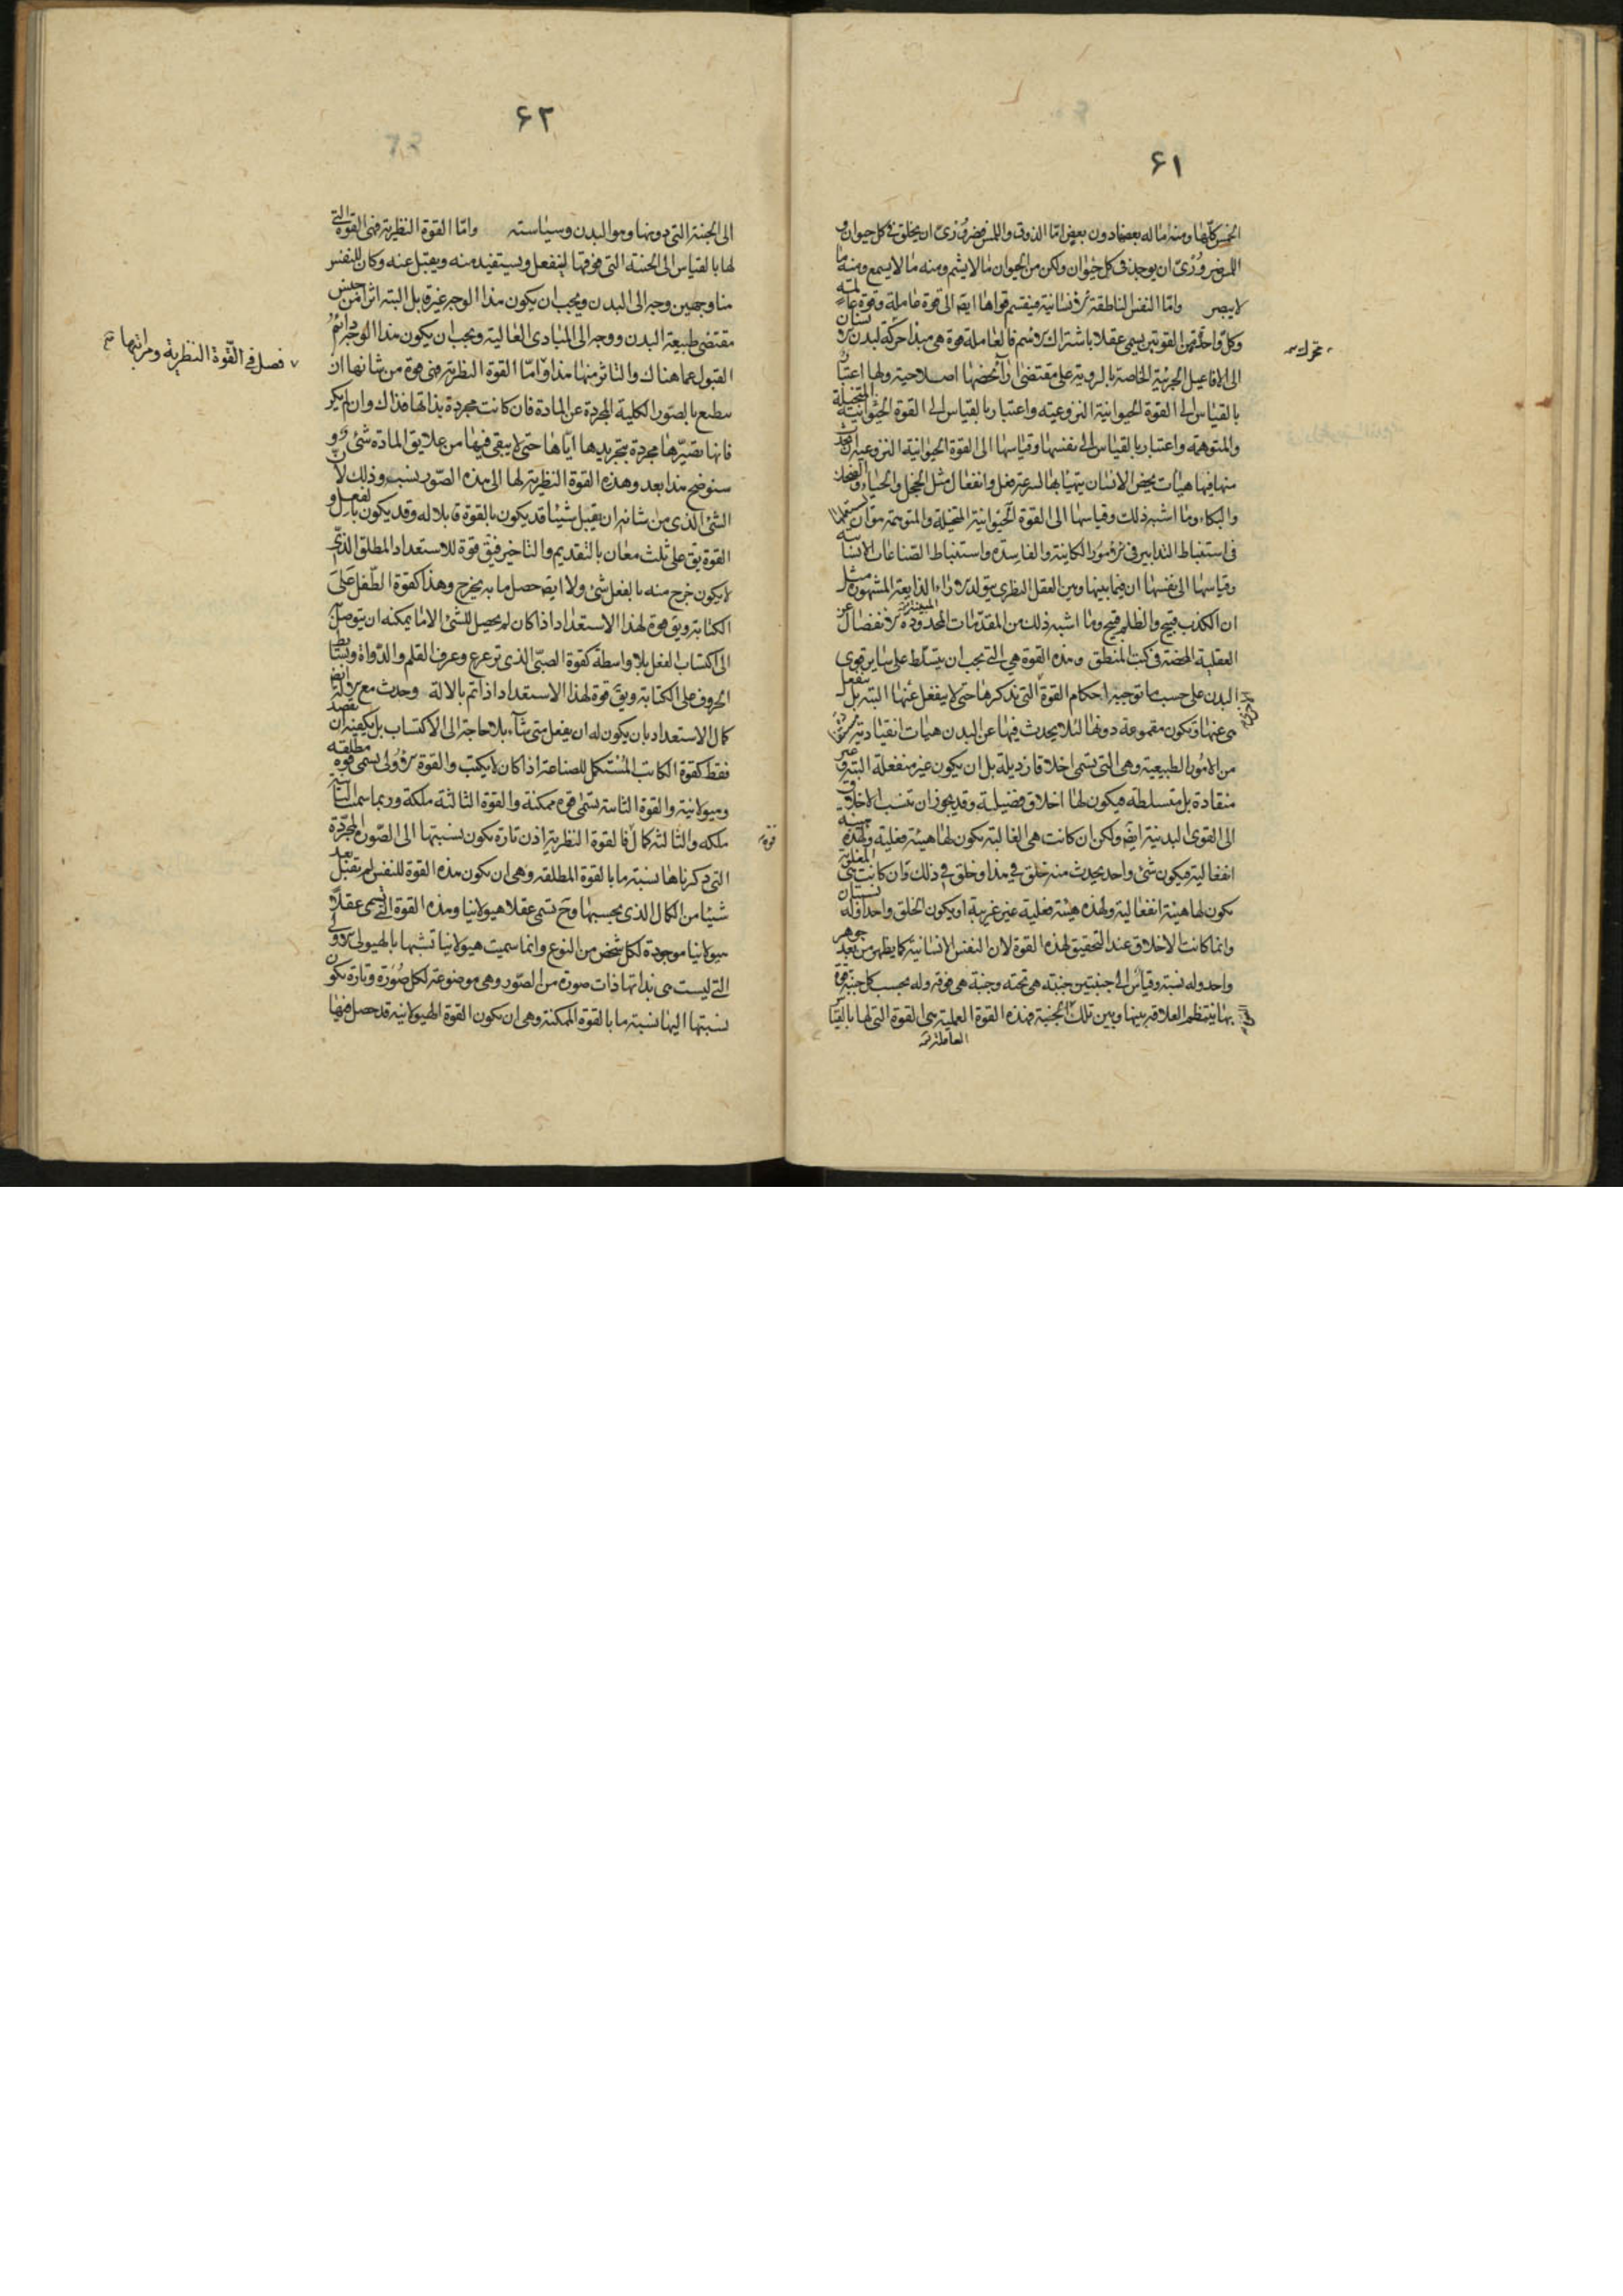 ۶۱
الخمس كلها ومنه ما له بعضها دون بعض اما الذوق واللمس فضروری ان يخلق فی كل حيوان و
اللمس ضروری ان يوجد فی كل حيوان ولكن من الحيوان ما لا يشم ومنه ما لا يسمع ومنه ما
لا يبصر واما النفس الناطقة الانسانية فينقسم قواها ايضا الی قوة عاملة وقوة عالمة
وكل واحدة من القوتين يسمی عقلا باشتراك الاسم فالعاملة قوة هی مبدأ حركة لبدن الانسان
محرك
الی الافاعيل الجزئية الخاصة بالروية علی مقتضی آراء تخصها اصلاحية ولها اعتبار
بالقياس الی القوة الحيوانية النزوعية واعتبار بالقياس الی القوة الحيوانية المتخيلة
والمتوهمة واعتبار بالقياس الی نفسها وقياسها الی القوة الحيوانية النزوعية ان تحدث
منها فيها هيأت يخص الانسان يتهيأ بها لسرعة فعل وانفعال مثل الخجل والحياء والضحك
والبكاء وما اشبه ذلك وقياسها الی القوة الحيوانية المتخيلة والمتوهمة هو ان يستعملها
فی استنباط التدابير فی الامور الكاينة والفاسدة واستنباط الصناعات الانسانية
وقياسها الی نفسها ان فيما بينها وبين العقل النظری يتولد الآراء الذايعة المشهورة مثل
ان الكذب قبيح والظلم قبيح وما اشبه ذلك من المقدمات المحدودة الانفصال عن
العقلية المحضة فی كتب المنطق وهذه القوة هی التی يجب ان يتسلط علی ساير قوی
البدن علی حسب ما توجبه احكام القوة التی نذكرها حتی لا ينفعل عنها البتة بل ينفعل
هی عنها وتكون مقموعة دونها لئلا يحدث فيها عن البدن هيات انقيادية
من الامور الطبيعية وهی التی تسمی اخلاقا رذيلة بل ان يكون غير منفعلة البتة وغير
منقادة بل متسلطة فيكون لها اخلاق فضيلية وقد يجوز ان تنسب الاخلاق
الی القوی البدنية ايضا ولكن ان كانت هی الغالبة تكون لها هيئة فعلية ولهذه هيئة
انفعالية فيكون شئ واحد يحدث منه خلق فی هذا وخلق فی ذلك وان كانت هی المغلوبة
يكون لها هيئة انفعالية ولهذه هيئة فعلية غير غريبة او يكون الخلق واحدا وله نسبتان
وانما كانت الاخلاق عند التحقيق لهذه القوة لان النفس الانسانية كما يظهر من بعد جوهر
واحد وله نسبة وقياس الی جنبتين جنبة هی تحته وجنبة هی فوقه وله بحسب كل جنبة قوة
بها ينتظم العلاقة بينها وبين تلك الجنبة فهذه القوة العملية هی القوة التی لها بالقياس
العاملة
۶۲
الی الجنبة التی دونها وهو البدن وسياسته واما القوة النظرية فهی القوة التی
لها بالقياس الی الجنبة التی فوقها لينفعل ويستفيد منه ويقبل عنه وكان للنفس
منا وجهين وجه الی البدن ويجب ان يكون هذا الوجه غير قابل البتة اثرا من جنس
مقتضی طبيعة البدن ووجه الی المبادی العالية ويجب ان يكون هذا الوجه دايم
القبول عما هناك والتاثر منها هذا واما القوة النظرية فهی قوة من شانها ان
فصل فی القوة النظرية ومراتبها
ينطبع بالصور الكلية المجردة عن المادة فان كانت مجردة بذاتها فذاك وان لم يكن
فانها تصيرها مجردة بتجريدها اياها حتی لا يبقی فيها من علايق المادة شئ و
سنوضح هذا بعد وهذه القوة النظرية لها الی هذه الصور نسب وذلك لان
الشئ الذی من شانه ان يقبل شيئا قد يكون بالقوة قابلا له وقد يكون بالفعل و
القوة يق علی ثلث معان بالتقديم والتاخير فيق قوة للاستعداد المطلق الذی
لا يكون خرج منه بالفعل شئ ولا ايضا حصل ما به يخرج وهذا كقوة الطفل علی
الكتابة ويق قوة لهذا الاستعداد اذا كان لم يحصل للشئ الا ما يمكنه ان يتوصل به
الی اكتساب الفعل بلا واسطة كقوة الصبی الذی ترعرع وعرف القلم والدواة وبسايط
الحروف علی الكتابة ويق قوة لهذا الاستعداد اذا تم بالالة وحدث مع الالة ايضا
كمال الاستعداد بان يكون له ان يفعل متی شاء بلا حاجة الی الاكتساب بل يكفيه ان يقصد
فقط كقوة الكاتب المستكمل للصناعة اذا كان لا يكتب والقوة الاولی تسمی قوة مطلقة
وهيولانية والقوة الثانية تسمی قوة ممكنة والقوة الثالثة ملكة وربما سميت الثانية
ملكه والثالثة كمال قوة فالقوة النظرية اذن تارة تكون نسبتها الی الصور المجردة
التی ذكرناها نسبة ما بالقوة المطلقه وهی ان تكون هذه القوة للنفس لم تقبل بعد
شيئا من الكمال الذی بحسبها وح تسمی عقلا هيولانيا وهذه القوة التی تسمی عقلا
هيولانيا موجودة لكل شخص من النوع وانما سميت هيولانيا تشبها بالهيولی الاولی
التی ليست هی بذاتها ذات صورة من الصور وهی موضوعة لكل صورة وتارة تكون
نسبتها اليها نسبة ما بالقوة الممكنة وهی ان تكون القوة الهيولانية قد حصل فيها